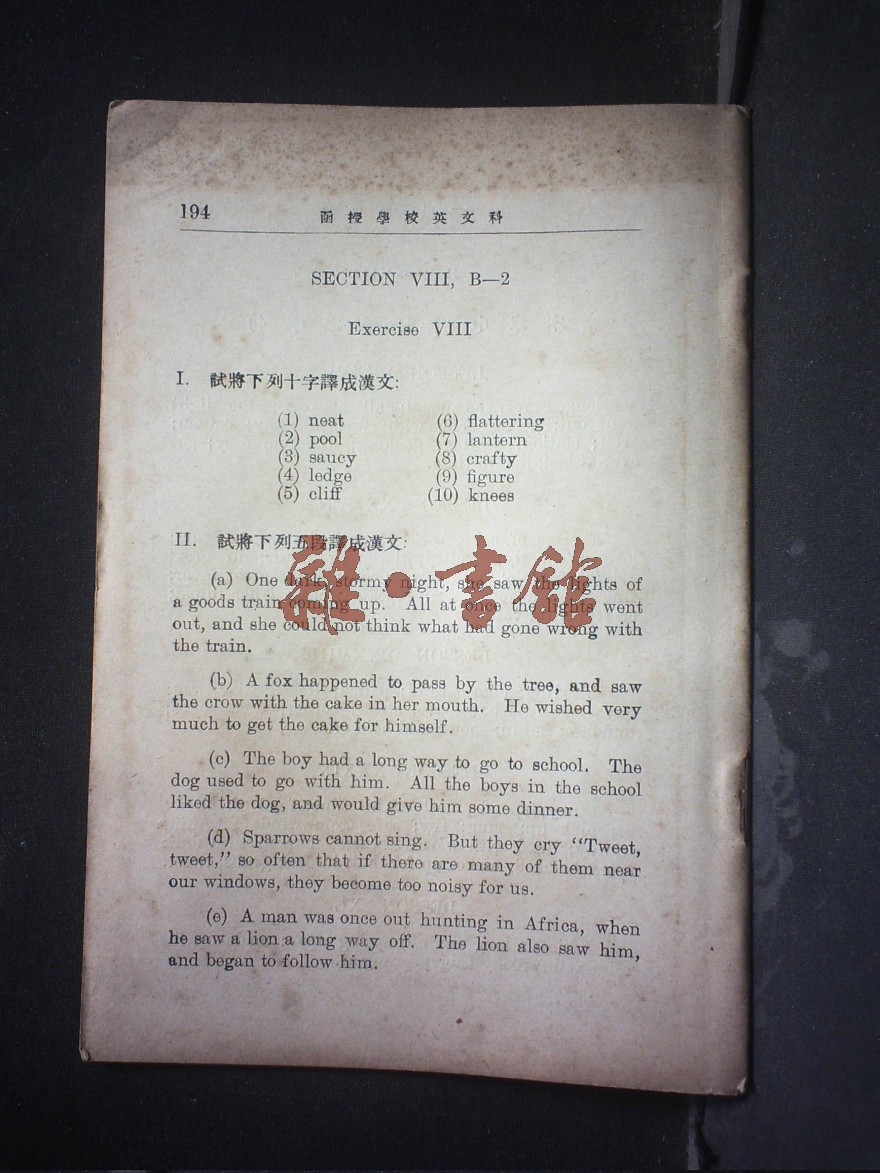 194
函授學校英文科
SECTION VIII, B—2
Exercise VIII
I. 試將下列十字譯成漢文:
(1) neat (6) flattering
(2) pool (7) lantern
(3) saucy (8) crafty
(4) ledge (9) figure
(5) cliff (10) knees
II. 試將下列五段譯成漢文:
(a) One dark, stormy night, she saw the lights of
a goods train coming up. All at once the lights went
out, and she could not think what had gone wrong with
the train.
(b) A fox happened to pass by the tree, and saw
the crow with the cake in her mouth. He wished very
much to get the cake for himself.
(c) The boy had a long way to go to school. The
dog used to go with him. All the boys in the school
liked the dog, and would give him some dinner.
(d) Sparrows cannot sing. But they cry “Tweet,
tweet,” so often that if there are many of them near
our windows, they become too noisy for us.
(e) A man was once out hunting in Africa, when
he saw a lion a long way off. The lion also saw him,
and began to follow him.
雜·書館